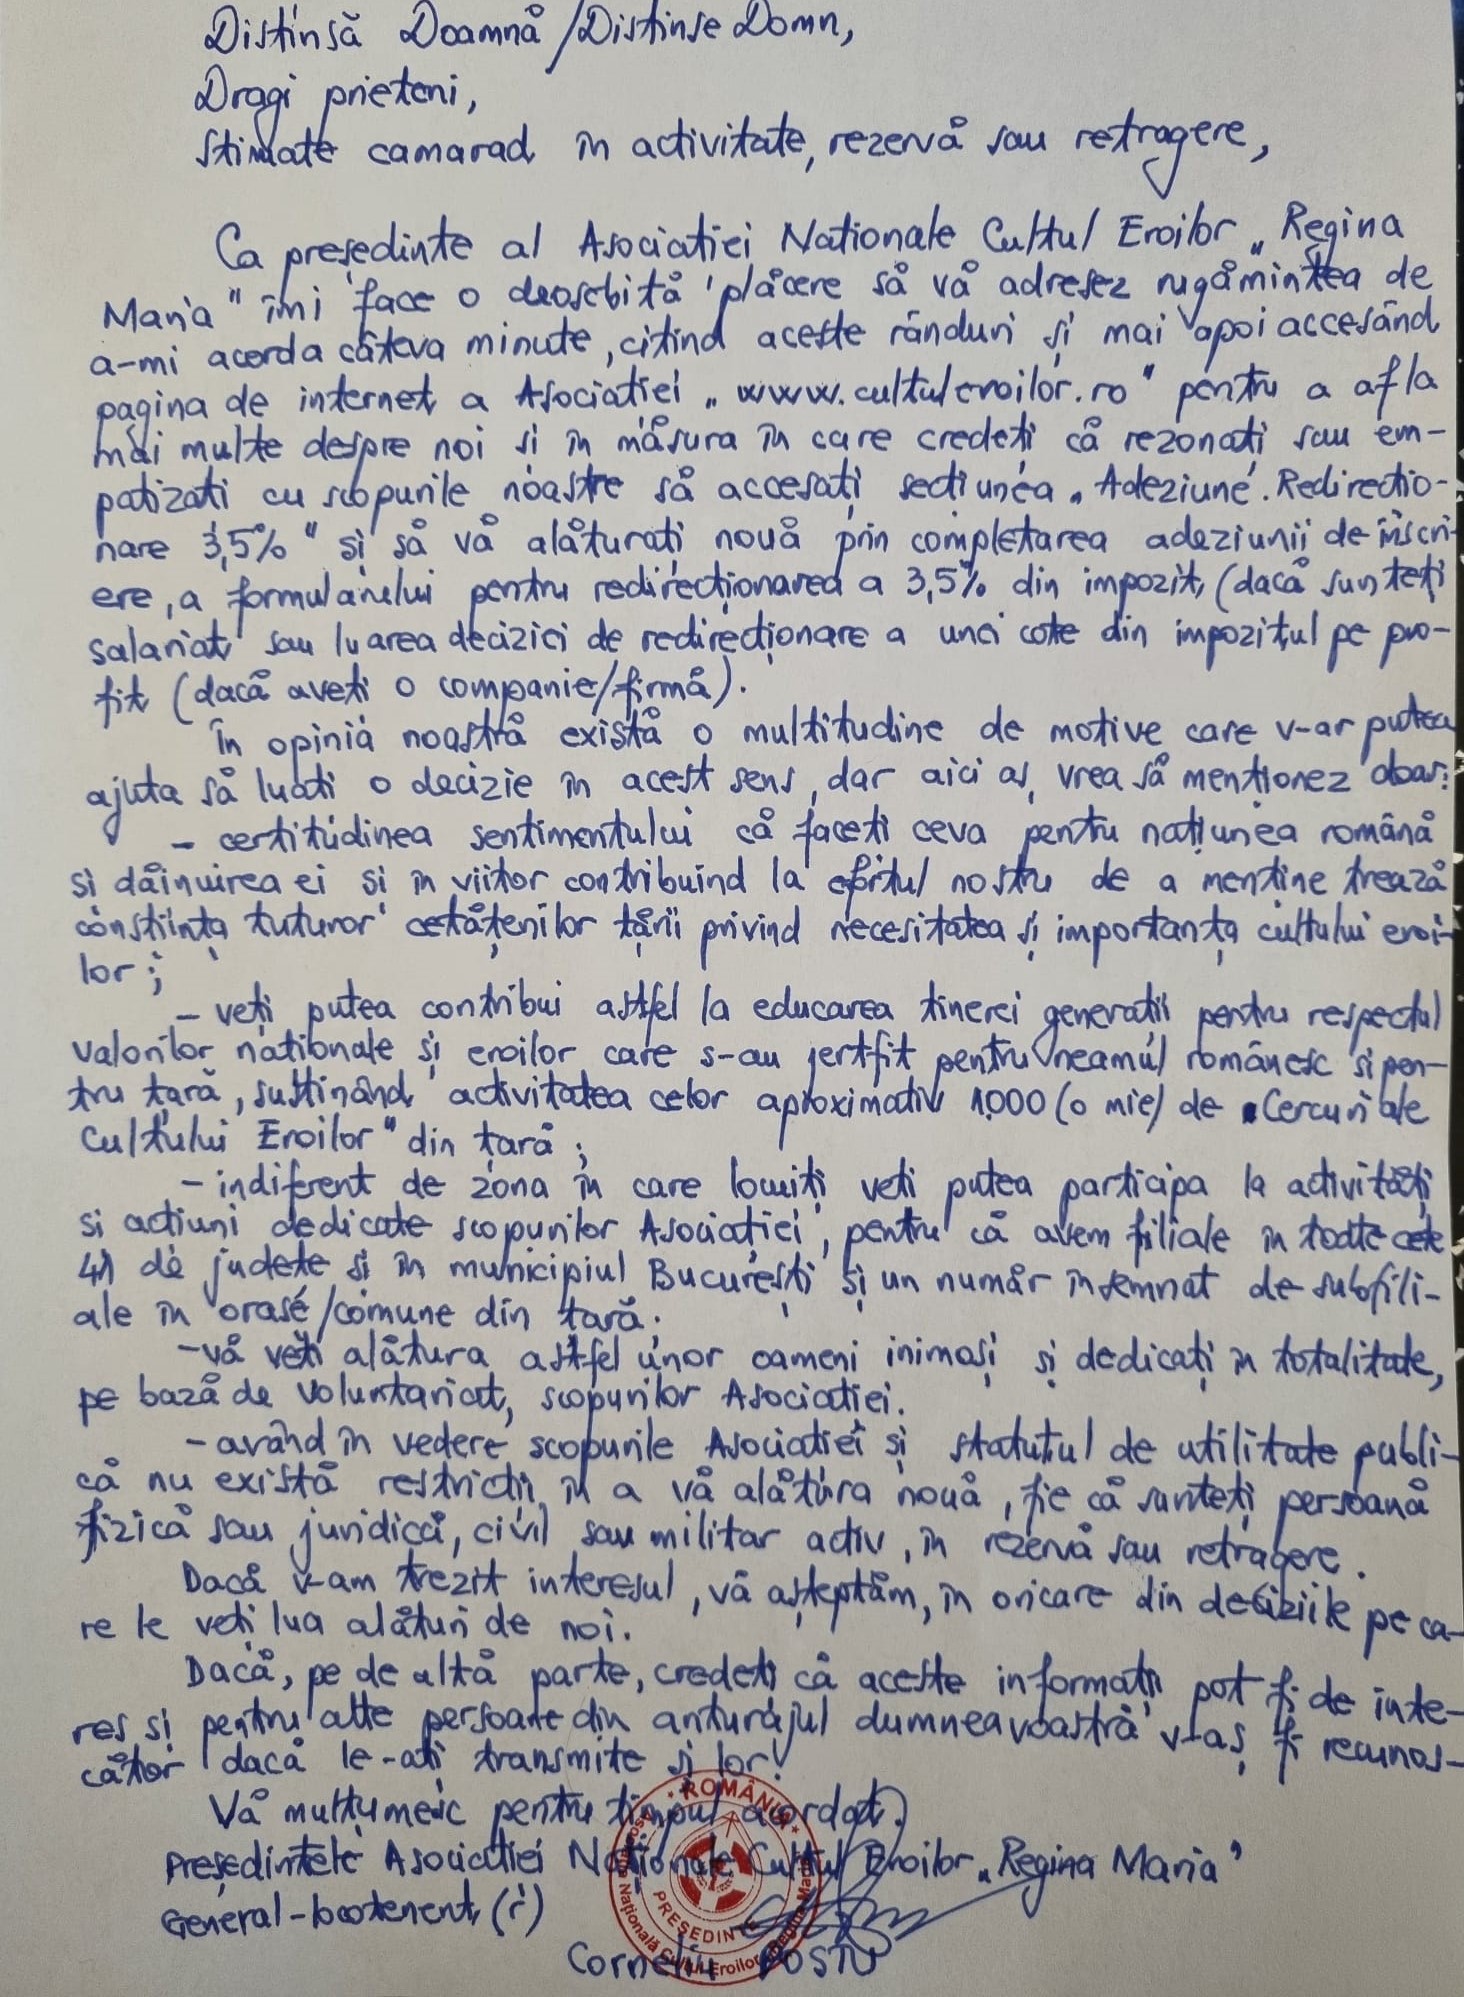 Distinsă Doamnă/Distinse Domn,
Dragi prieteni,
Stimate camarad în activitate, rezervă sau retragere,
Ca președinte al Asociatiei Nationale Cultul Eroilor „Regina
Maria" îmi face o deosebită plăcere să vă adresez rugămintea de
a-mi acorda câteva minute, citind aceste rânduri și mai apoi accesând
pagina de internet a Asociatiei „www.cultuleroilor.ro" pentru a afla
mai multe despre noi si în măsura în care credeti că rezonati sau em-
patizati cu scopurile noastre să accesati sectiunea „Adeziune. Redirectio-
nare 3,5%" și să vă alăturati nouă prin completarea adeziunii de înscri-
ere, a formularului pentru redirecționarea a 3,5% din impozit, (dacă sunteți
salariat sau luarea deciziei de redirecționare a unei cote din impozitul pe pro-
fit (dacă aveti o companie/firmă).
În opinia noastră există o multitudine de motive care v-ar putea
ajuta să luati o decizie în acest sens, dar aici aș vrea să menționez doar:
- certitudinea sentimentului că faceti ceva pentru națiunea română
si dăinuirea ei și în viitor contribuind la efortul nostru de a menține trează
constiința tuturor cetățenilor țării privind necesitatea și importanța cultului eroi-
lor;
- veți putea contribui astfel la educarea tinerei generatii pentru respectul
valorilor nationale și eroilor care s-au jertfit pentru neamul românesc si pen-
tru țară, sustinând activitatea celor aproximativ 1.000 (o mie) de „Cercuri ale
Cultului Eroilor" din țară;
- indiferent de zona în care locuiti veti putea participa la activități
si actiuni dedicate scopurilor Asociației, pentru că avem filiale în toate cele
41 de judete și în municipiul București și un număr însemnat de subfili-
ale în orase/comune din țară;
-vă veti alătura astfel unor oameni inimași și dedicați în totalitate,
pe bază de voluntariat, scopurilor Asociatiei.
- având în vedere scopurile Asociatiei și statutul de utilitate publi-
că nu există restrictii în a vă alătura nouă, fie că sunteți persoană
fizică sau juridică, civil sau militar activ, în rezervă sau retragere.
Dacă v-am trezit interesul, vă așteptăm, în oricare din deciziile pe ca-
re le veți lua alături de noi.
Dacă, pe de altă parte, credeti că aceste informatii pot fi de inte-
res și pentru alte persoane din anturajul dumneavoastră v-aș fi recunos-
cător dacă le-ați transmite și lor!
Vă mulțumesc pentru timpul acordat.
Președintele Asociatiei Naționale Cultul Eroilor „Regina Maria"
General-locotenent (r)
Corneliu POSTU
ROMÂNIA
Națională Cultul Eroilor Regina Maria
PREȘEDINTE